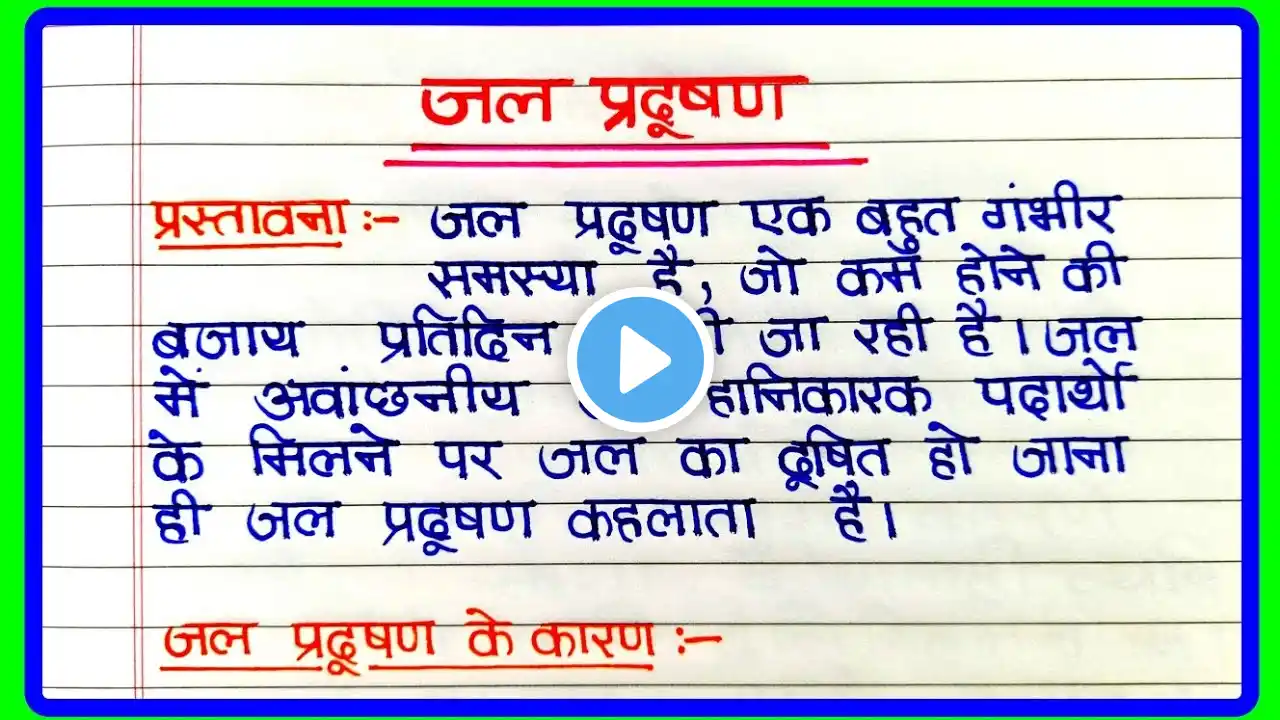 जल प्रदूषण
प्रस्तावना :- जल प्रदूषण एक बहुत गंभीर
समस्या है, जो कम होने की
बजाय प्रतिदिन जा रही है। जल
में अवांछनीय हानिकारक पदार्थो
के मिलने पर जल का दूषित हो जाना
ही जल प्रदूषण कहलाता है।
जल प्रदूषण के कारण :-